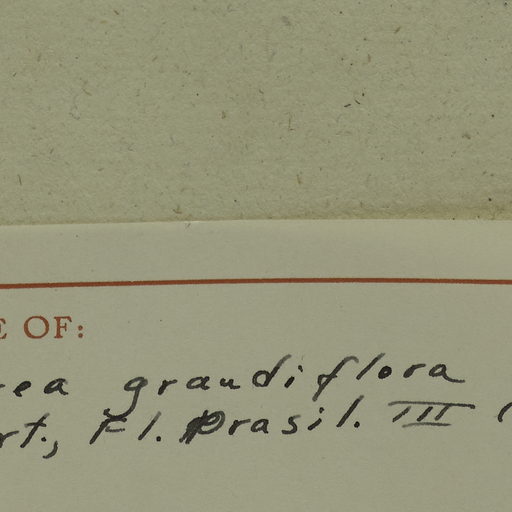 E OF:
rea grandiflora
rt., Fl. Brasil. III (